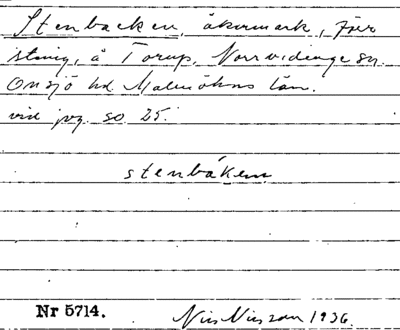 Stenbacken, åkermark, före
å Torup, Norrvidinge sn.
Onsjö hd. Malmöhus län.
vid jvg. so 25.
stenbáken
Nr 5714.
Nils Nilsson 1936.